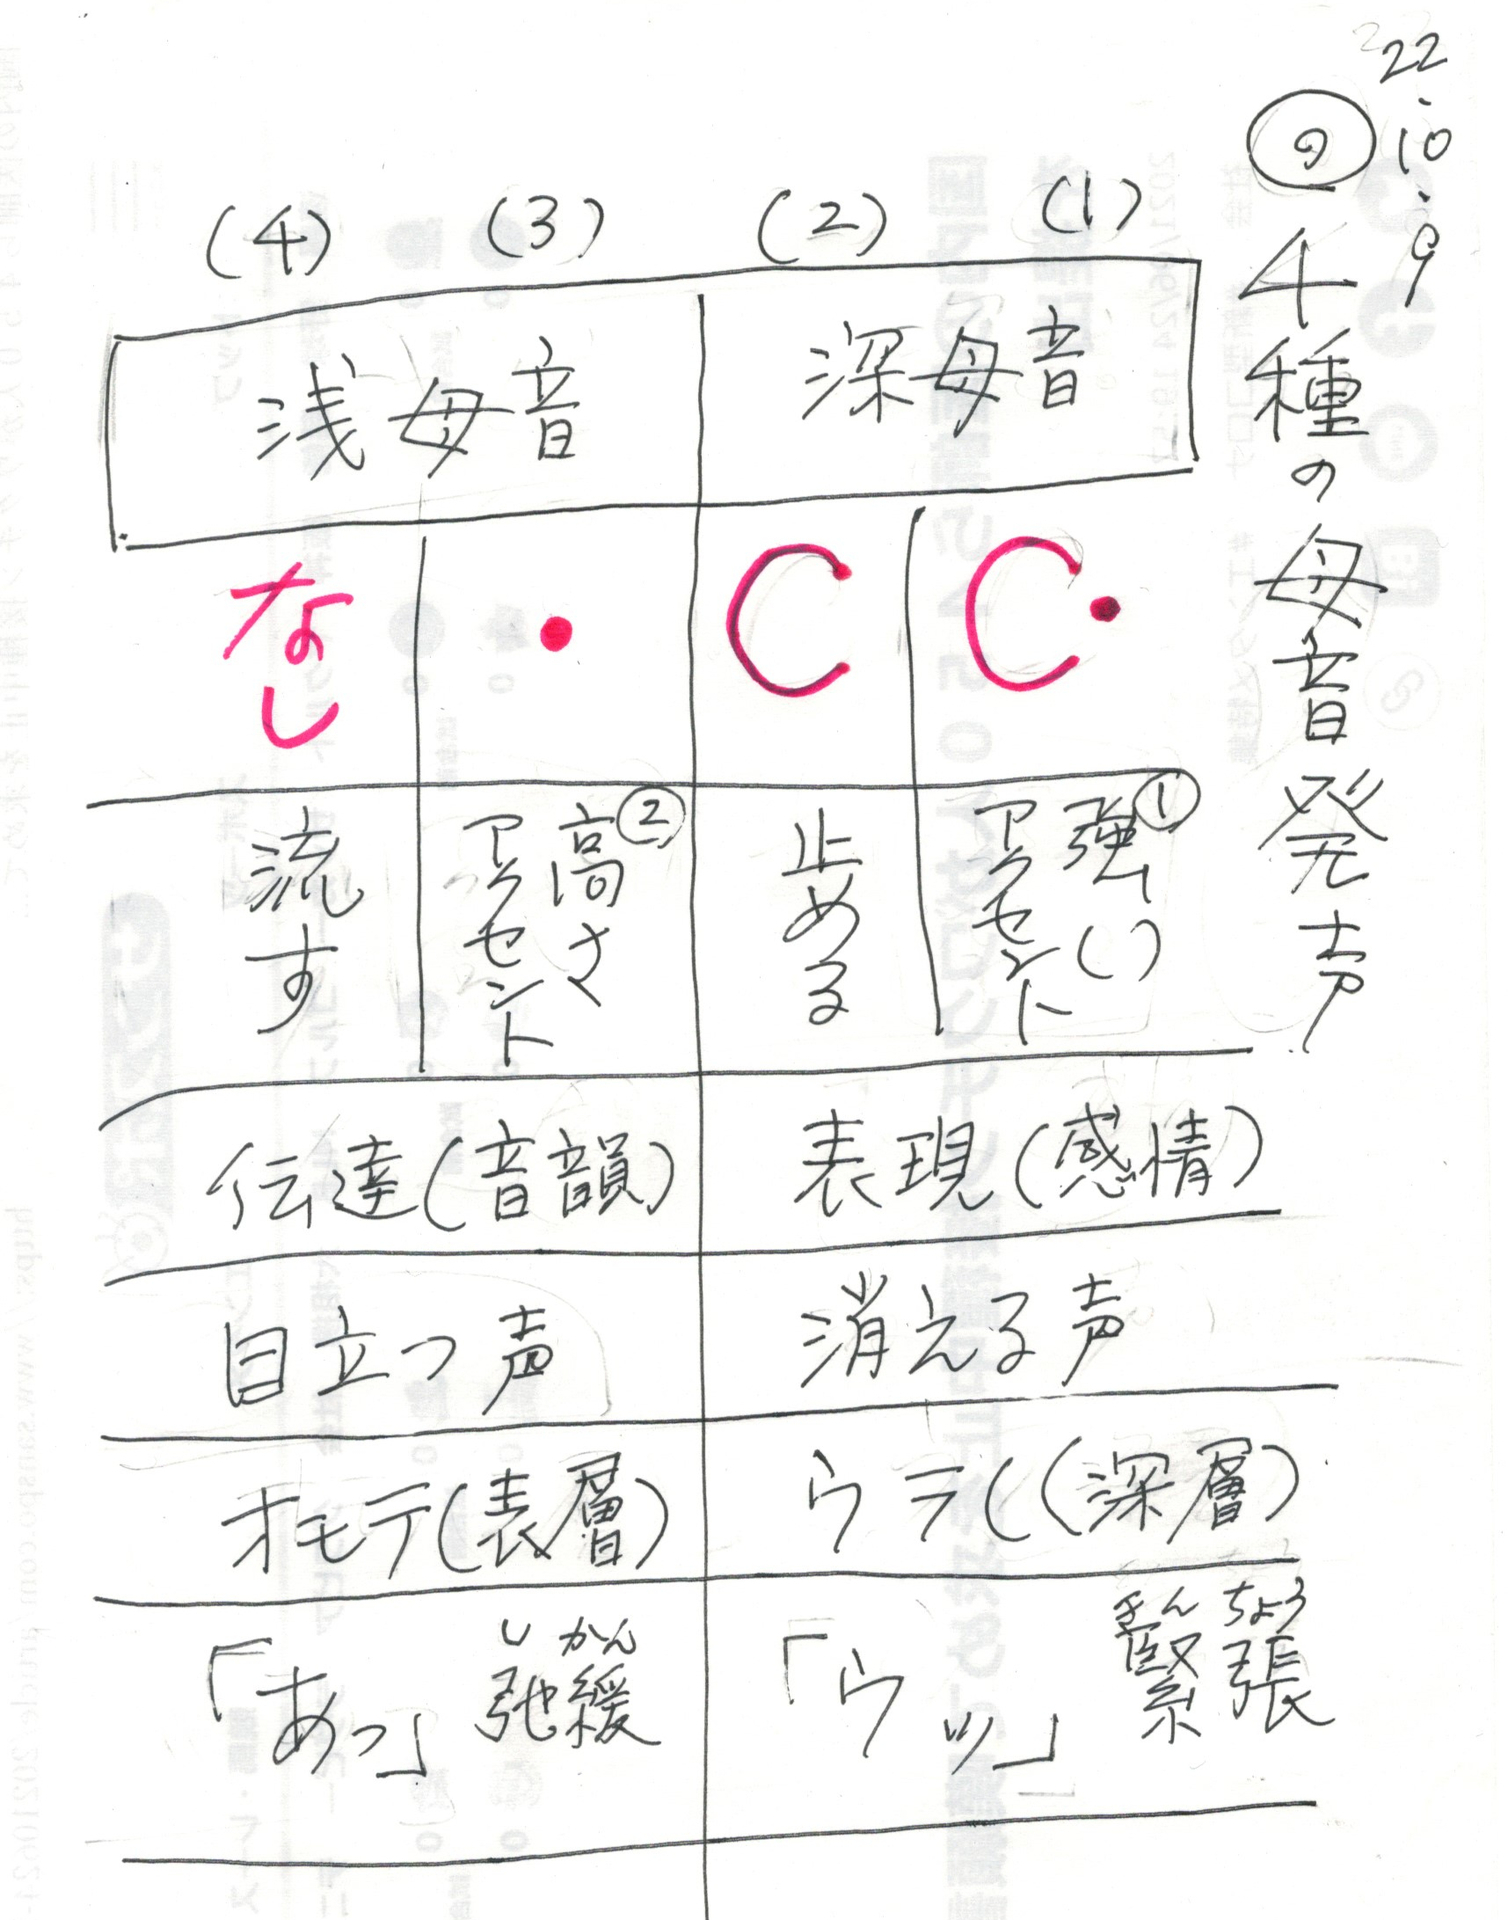 22.10.9
の 4種の母音発声
(1) (2) (3) (4)
深母音
浅母音
C・
C
・
なし
① 強()
アクセント
止める
② 高さ
アクセント
流す
表現(感情)
伝達(音韻)
消える声
目立つ声
ウラ((深層)
オモテ(表層)
「ウッ」 緊張
きんちょう
「あっ」 弛緩
しかん